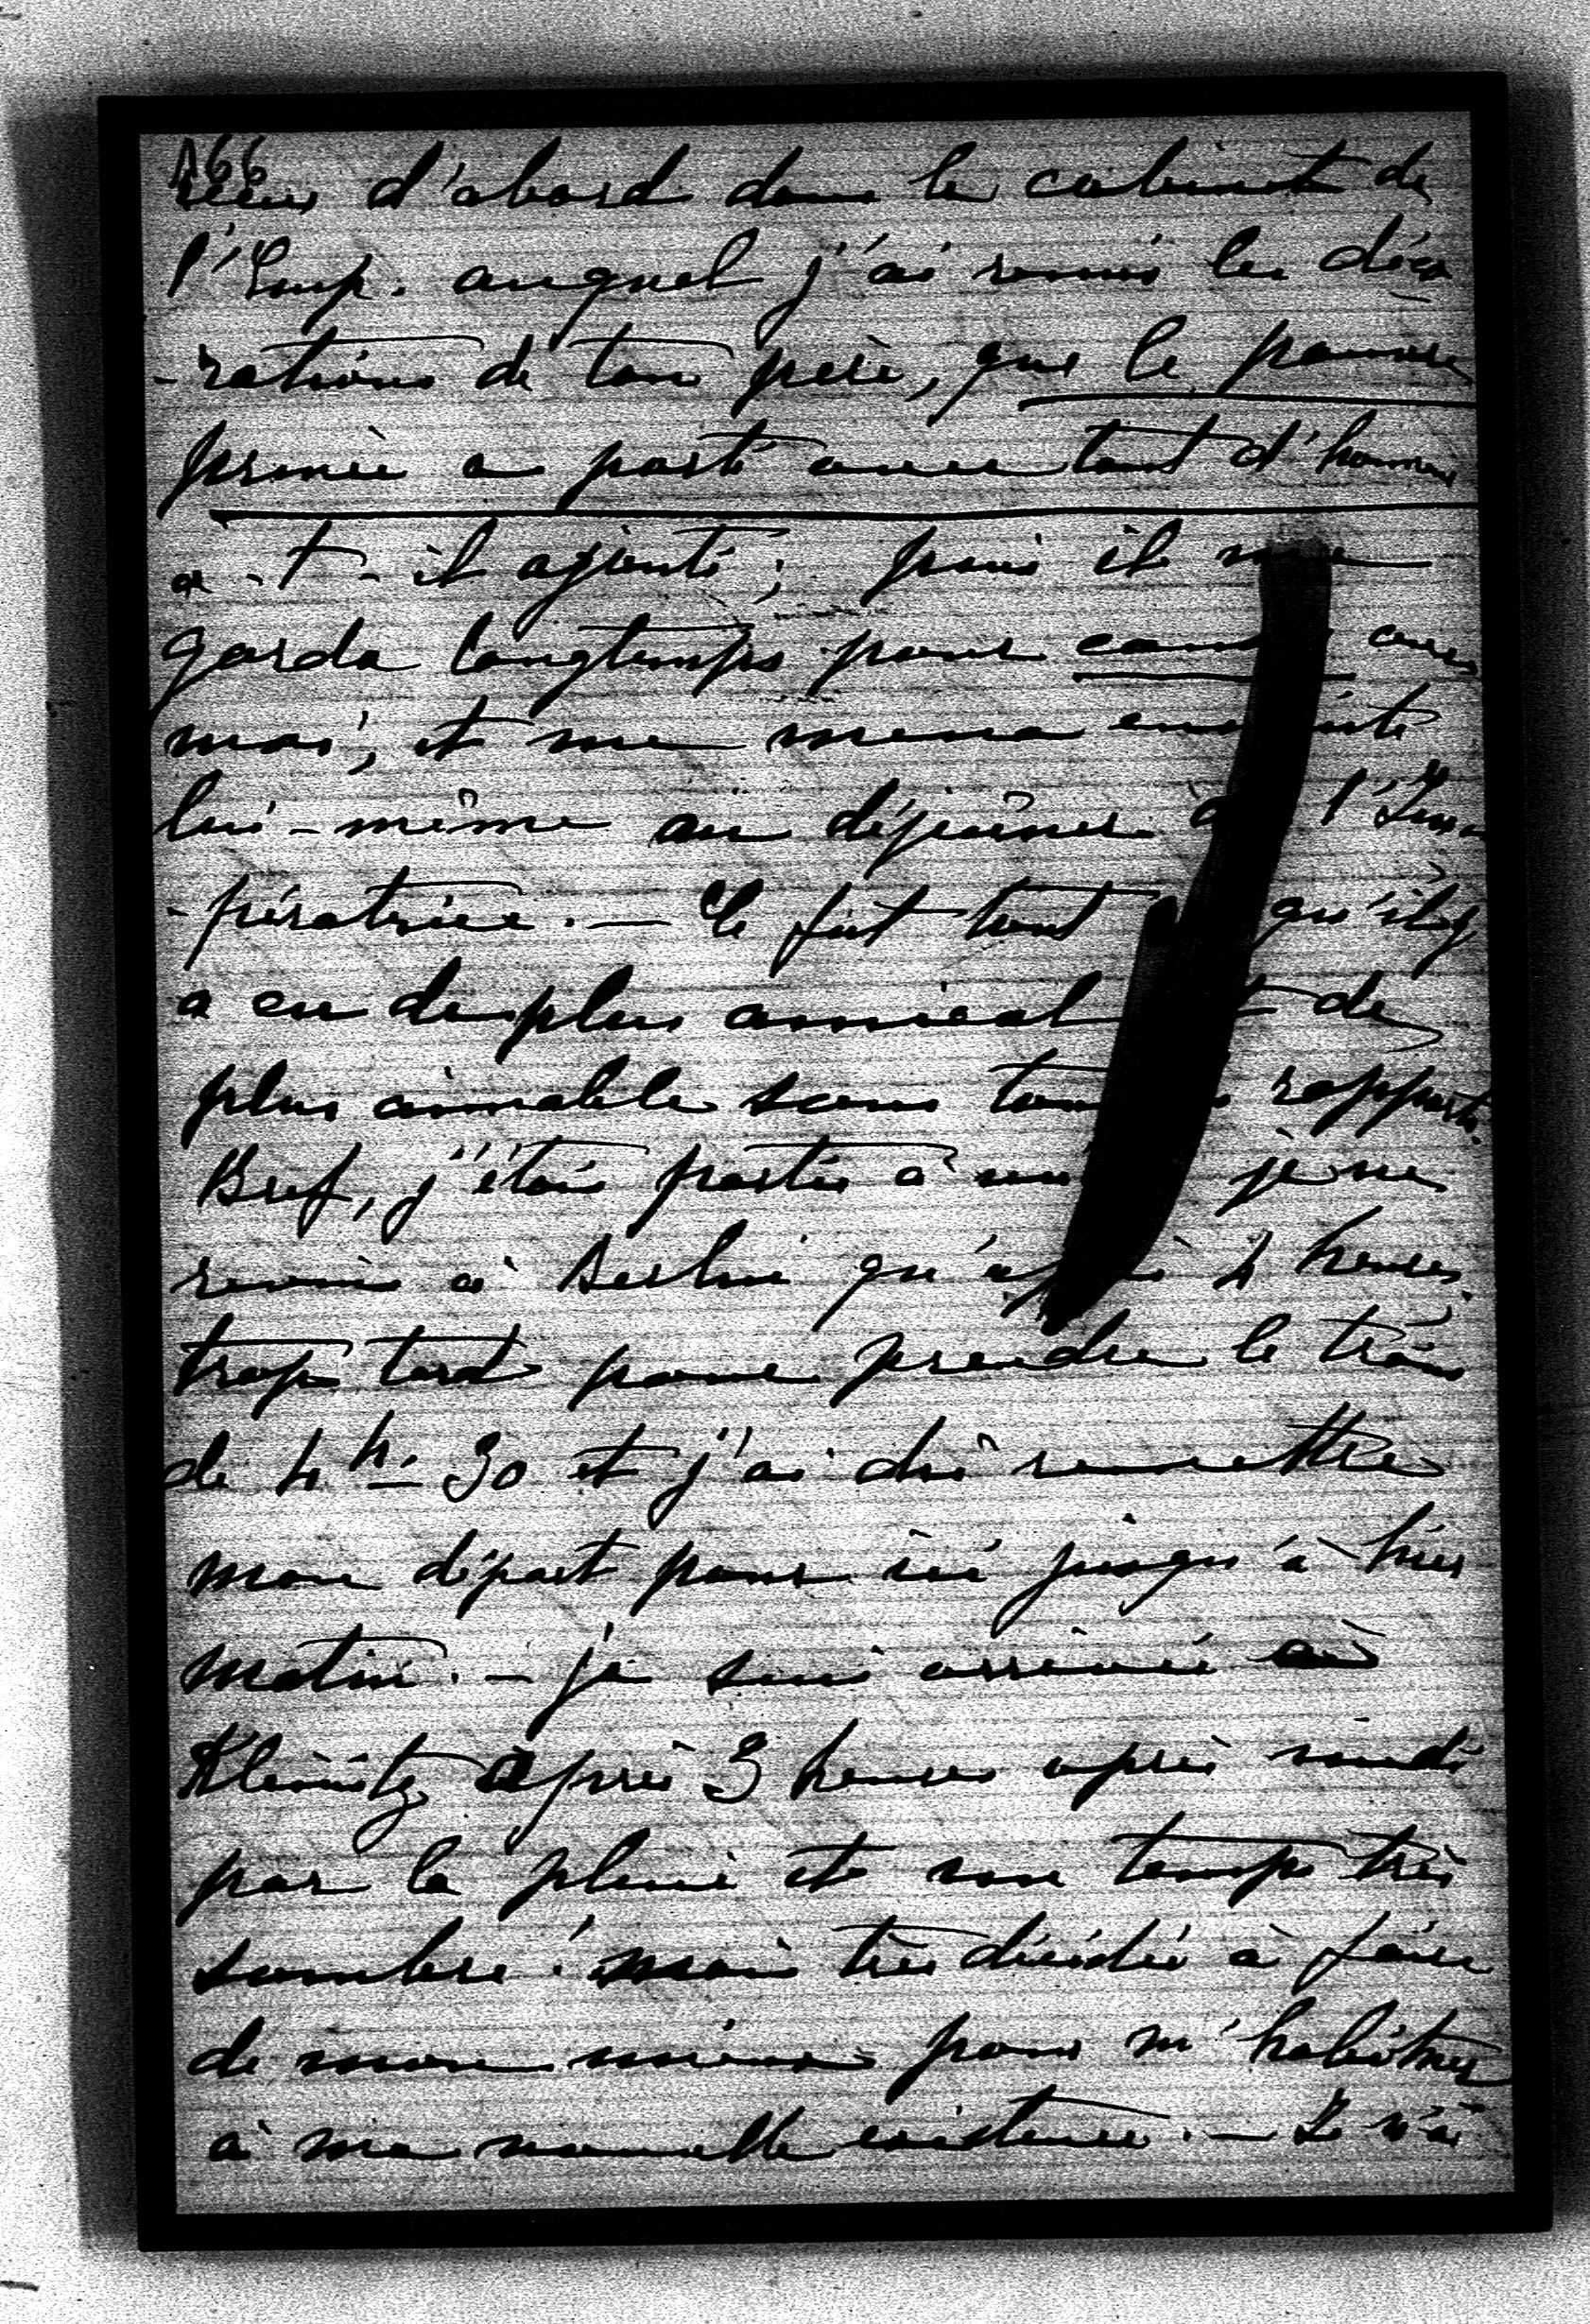 166
reçus d'abord dans le cabinet de
l'Emp. auquel j'ai remis les déco
-rations de ton père, que le pauvre
prince a porté avec tant d'honneur
a-t-il ajouté; puis il me
garda longtemps pour causer avec
moi, et me mena ensuite
lui-même au déjeuner à l'Im
-pératrice. — Ce fut tout qu'il y
a eu de plus amical et de
plus aimable sous tous rapports.
Bref, j'étais partie à je ne
revins à Berlin qu'après 4 heures
trop tard pour prendre le train
de 4 h. 30 et j'ai dû remettre
mon départ pour ici jusqu'à hier
matin. — Je suis arrivée à
Kleinitz après 3 heures après midi
par la pluie et un temps très
sombre! mais très décidée à faire
de mon mieux pour m'habituer
à ma nouvelle existence. — Je n'ai